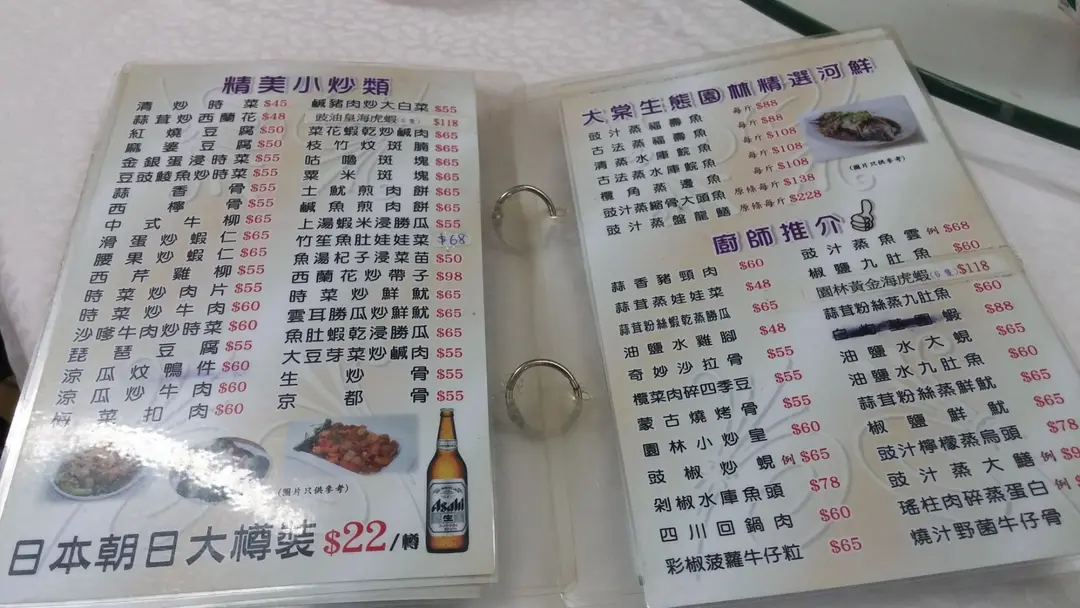 精美小炒類
清炒時菜 $45
蒜茸炒西蘭花 $48
紅燒豆腐 $50
麻婆豆腐 $50
金銀蛋浸時菜 $55
豆豉鯪魚炒時菜 $55
蒜香骨 $55
西檸骨 $55
中式牛柳 $65
滑蛋炒蝦仁 $65
腰果炒蝦仁 $65
西芹雞柳 $55
時菜炒肉片 $55
時菜炒牛肉 $60
沙嗲牛肉炒時菜 $60
琵琶豆腐 $55
涼瓜炆鴨件 $60
涼瓜炒牛肉 $60
梅菜扣肉 $60
鹹豬肉炒大白菜 $55
豉油皇海虎蝦(6隻) $118
菜花蝦乾炒鹹肉 $65
枝竹炆斑腩 $65
咕嚕斑塊 $65
粟米斑塊 $65
土魷煎肉餅 $65
鹹魚煎肉餅 $65
上湯蝦米浸勝瓜 $55
竹笙魚肚娃娃菜 $68
魚湯杞子浸菜苗 $50
西蘭花炒帶子 $98
時菜炒鮮魷 $65
雲耳勝瓜炒鮮魷 $65
魚肚蝦乾浸勝瓜 $65
大豆芽菜炒鹹肉 $55
生炒骨 $55
京都骨 $55
(圖片只供參考)
Asahi
生
日本朝日大樽裝 $22/樽
大棠生態園林精選河鮮
豉汁蒸福壽魚 每斤$88
古法蒸福壽魚 每斤$88
清蒸水庫鯇魚 每斤$108
古法蒸水庫鯇魚 每斤$108
欖角蒸邊魚 每斤$108
豉汁蒸縮骨大頭魚 原條每斤$138
豉汁蒸盤龍鱔 原條每斤$228
(圖片只供參考)
廚師推介
蒜香豬頸肉 $60
蒜茸蒸娃娃菜 $48
蒜茸粉絲蝦乾蒸勝瓜 $65
油鹽水雞腳 $48
奇妙沙拉骨 $55
欖菜肉碎四季豆 $55
蒙古燒烤骨 $55
園林小炒皇 $60
豉椒炒蜆 例$65
剁椒水庫魚頭 $78
四川回鍋肉 $60
彩椒菠蘿牛仔粒 $65
豉汁蒸魚雲 例$68
椒鹽九肚魚 $60
園林黃金海虎蝦(6隻) $118
蒜茸粉絲蒸九肚魚 $60
蝦 $88
油鹽水大蜆 $65
油鹽水九肚魚 $60
蒜茸粉絲蒸鮮魷 $65
椒鹽鮮魷 $65
豉汁檸檬蒸烏頭 $78
豉汁蒸大鱔 例
瑤柱肉碎蒸蛋白 例
燒汁野菌牛仔骨